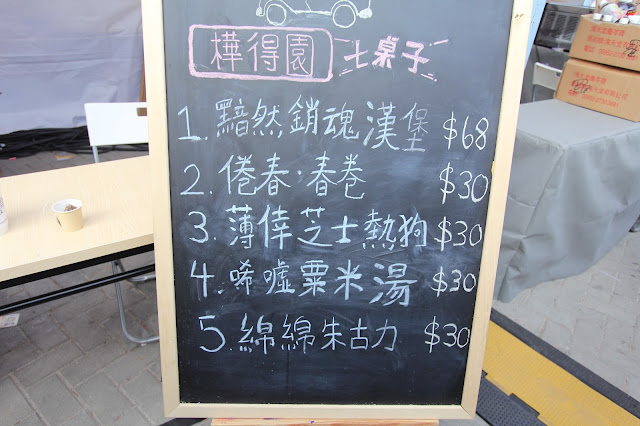 樺得園 士桌子
1. 黯然銷魂漢堡 $68
2. 倦春·春卷 $30
3. 薄倖芝士熱狗 $30
4. 唏噓粟米湯 $30
5. 綿綿朱古力 $30